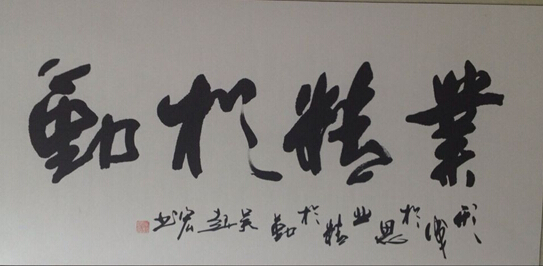 業精於勤
行成於思業精於勤 吴 宏书